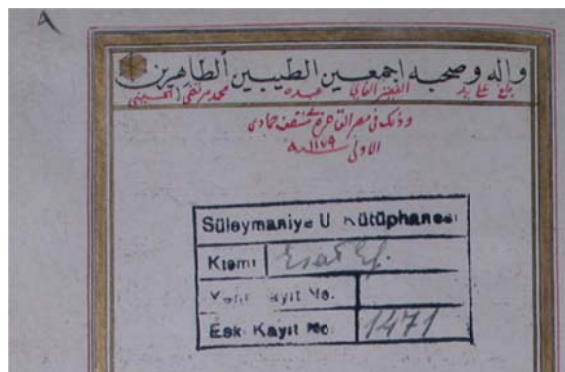 ٨
واله وصحبه اجمعين الطيبين الطاهرين
محمد مرتضى الحسيني
وذلك في مصر القاهرة منتصف جمادى
الاولى ١١٧٩
Süleymaniye U Kütüphanesi
Kısmı Esat Ef.
Yeni Kayıt No.
Eski Kayıt No. 1471